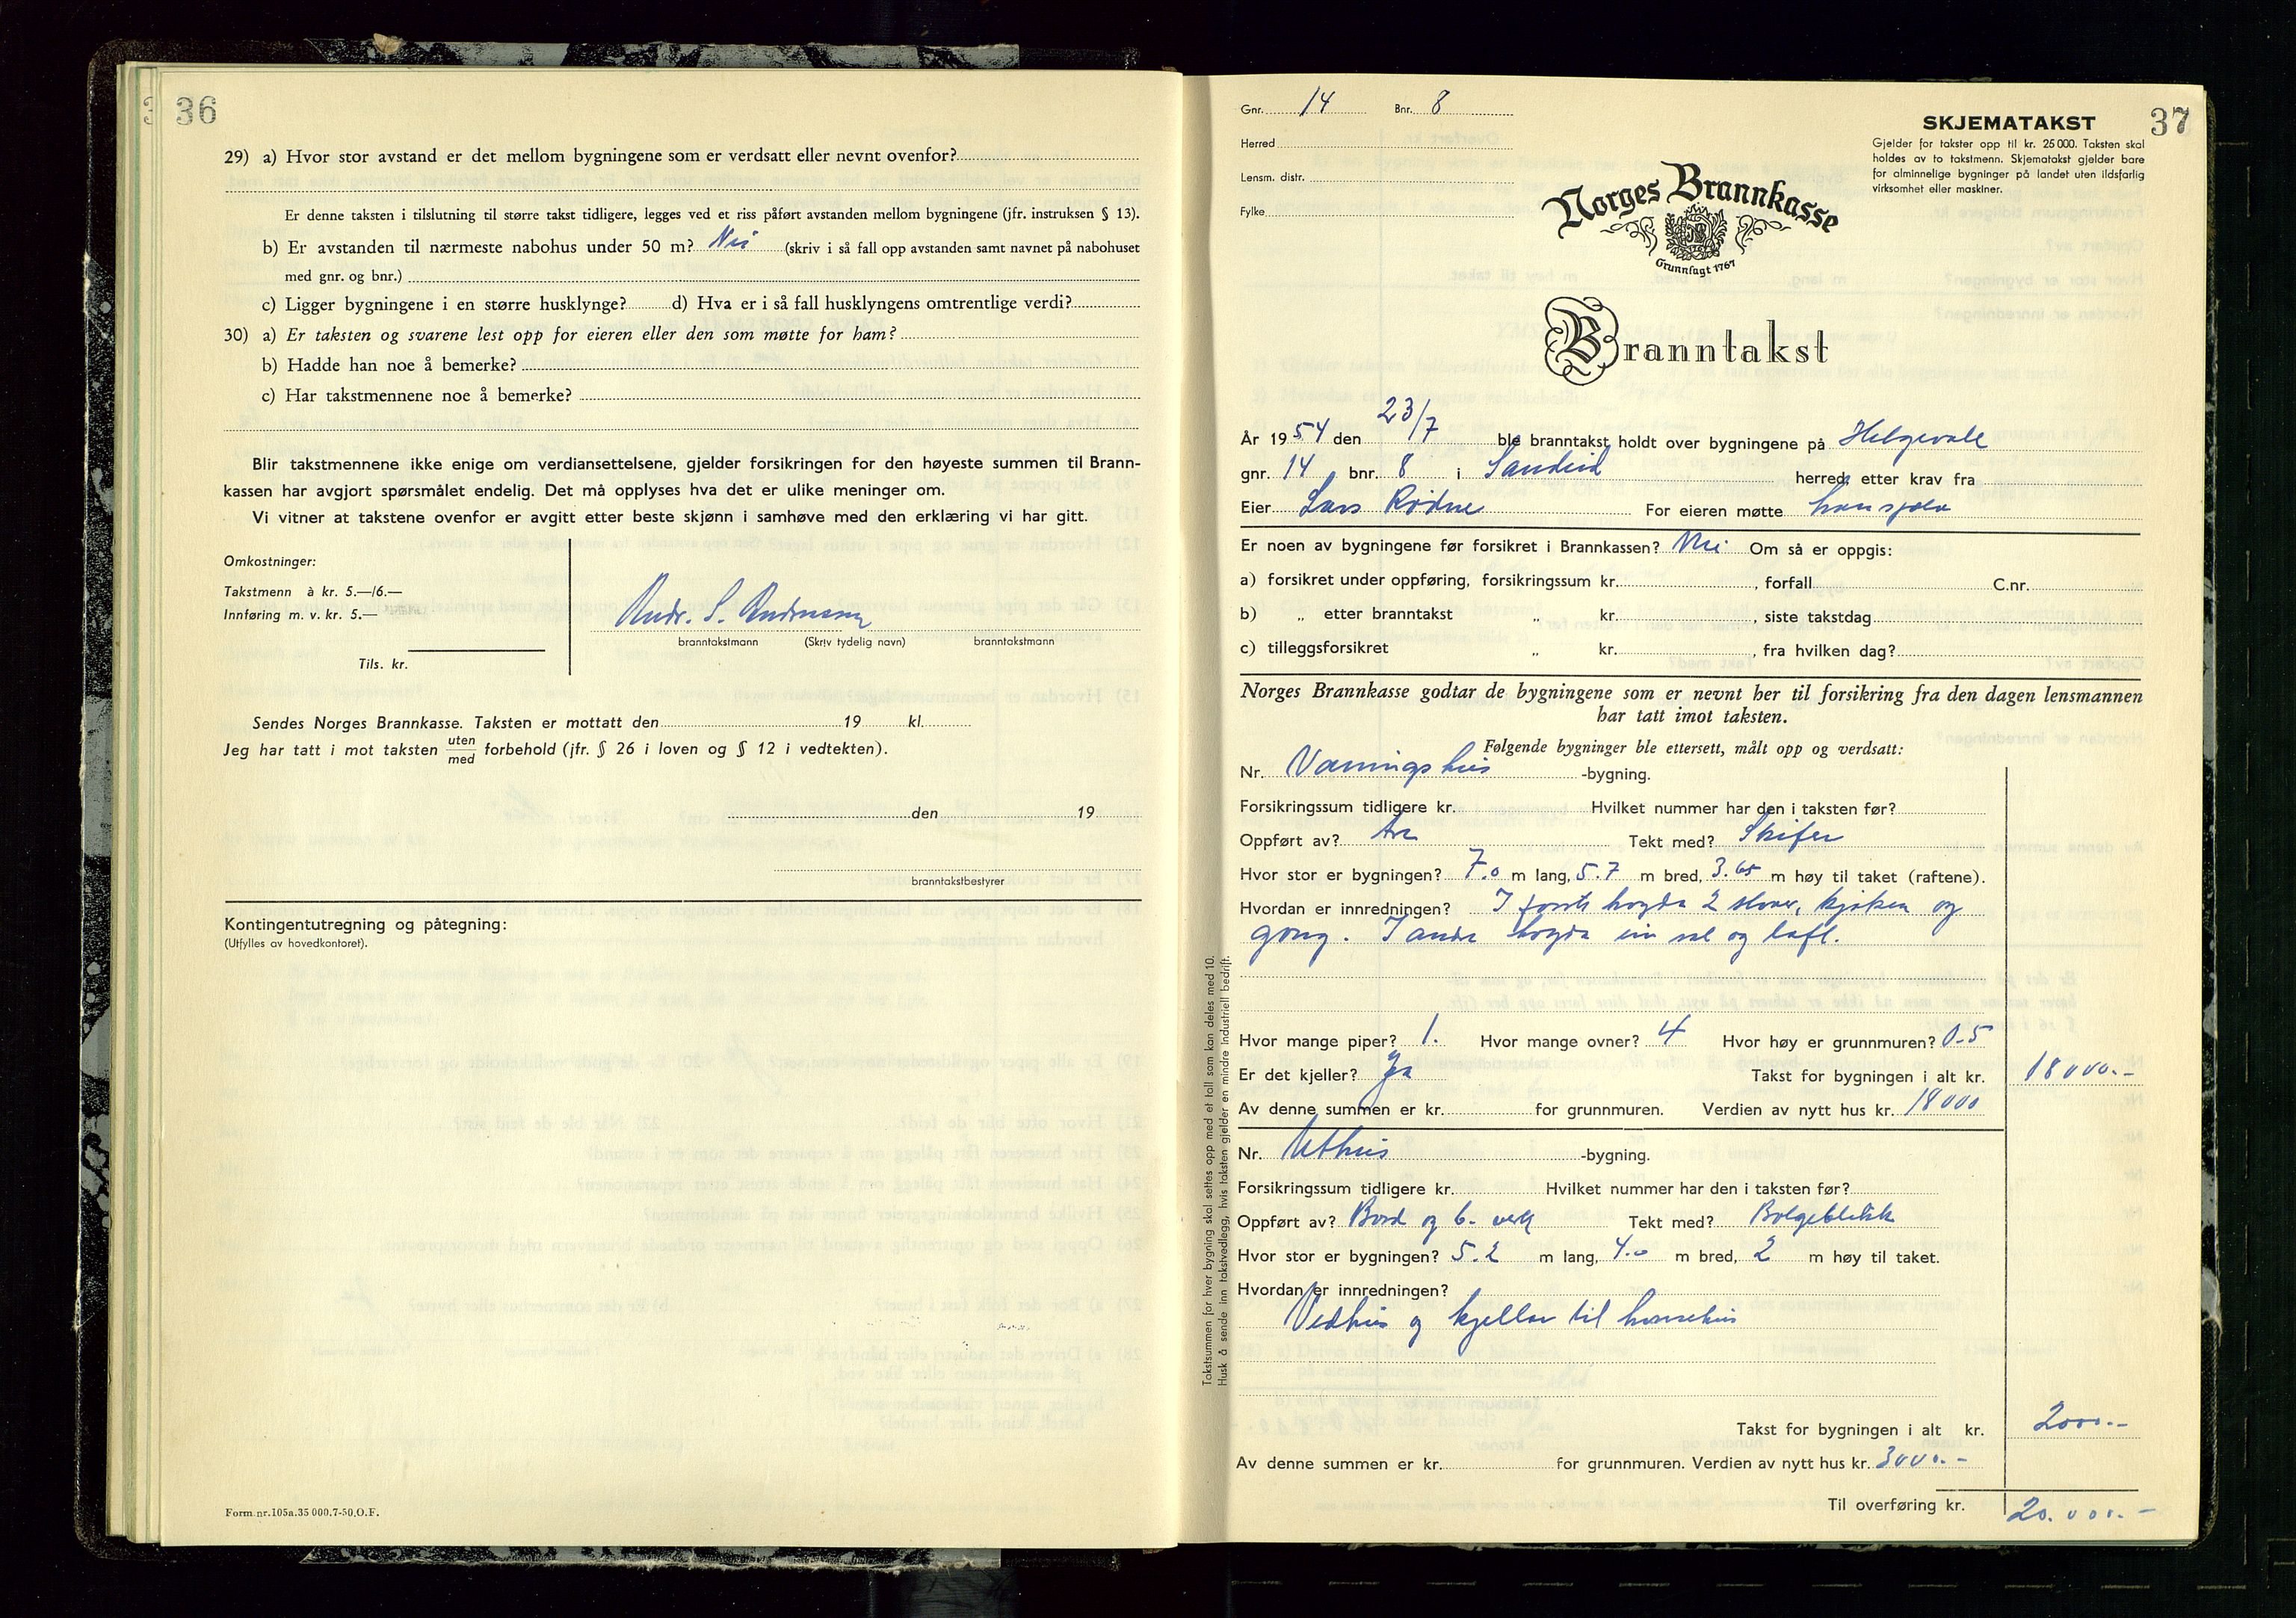 36
29) a) Hvor stor avstand er det mellom bygningene som er verdsatt eller nevnt ovenfor?
Er denne taksten i tilslutning til større takst tidligere, legges ved et riss påført avstanden mellom bygningene (jfr. instruksen § 13).
b) Er avstanden til nærmeste nabohus under 50 m? Nei (skriv i så fall opp avstanden samt navnet på nabohuset
med gnr. og bnr.)
c) Ligger bygningene i en større husklynge? d) Hva er i så fall husklyngens omtrentlige verdi?
30) a) Er taksten og svarene lest opp for eieren eller den som møtte for ham?
b) Hadde han noe å bemerke?
c) Har takstmennene noe å bemerke?
Blir takstmennene ikke enige om verdiansettelsene, gjelder forsikringen for den høyeste summen til Brann-
kassen har avgjort spørsmålet endelig. Det må opplyses hva det er ulike meninger om.
Vi vitner at takstene ovenfor er avgitt etter beste skjønn i samhøve med den erklæring vi har gitt.
Omkostninger:
Takstmenn à kr. 5.—/6.—
Innføring m. v. kr. 5.—
Tils. kr.
Andr. S. Andreasen
branntakstmann (Skriv tydelig navn) branntakstmann
Sendes Norges Brannkasse. Taksten er mottatt den 19 kl.
Jeg har tatt i mot taksten uten
med forbehold (jfr. § 26 i loven og § 12 i vedtekten).
den 19
branntakstbestyrer
Kontingentutregning og påtegning:
(Utfylles av hovedkontoret).
Form. nr. 105a. 35 000. 7-50. O.F.
37
Gnr. 14 Bnr. 8
Herred
Lensm. distr.
Fylke
SKJEMATAKST
Gjelder for takster opp til kr. 25 000. Taksten skal
holdes av to takstmenn. Skjematakst gjelder bare
for alminnelige bygninger på landet uten ildsfarlig
virksomhet eller maskiner.
Norges Brannkasse
Grunnlagt 1767
Branntakst
År 1954 den 23/7 ble branntakst holdt over bygningene på Helgevale
gnr. 14 bnr. 8 i Sandeid herred etter krav fra
Eier Lars Rødne For eieren møtte han sjølv
Er noen av bygningene før forsikret i Brannkassen? Nei Om så er oppgis:
a) forsikret under oppføring, forsikringssum kr. , forfall C.nr.
b) „ etter branntakst „ kr. , siste takstdag
c) tilleggsforsikret „ kr. , fra hvilken dag?
Norges Brannkasse godtar de bygningene som er nevnt her til forsikring fra den dagen lensmannen
har tatt imot taksten.
Følgende bygninger ble ettersett, målt opp og verdsatt:
Nr. Vaaningshus -bygning.
Forsikringssum tidligere kr. Hvilket nummer har den i taksten før?
Oppført av? tre Tekt med? Skifer
Hvor stor er bygningen? 7.0 m lang, 5.7 m bred, 3.65 m høy til taket (raftene).
Hvordan er innredningen? I første høgda 2 stover, kjøken og
gang. I andre høgda ein sal og loft.
Hvor mange piper? 1. Hvor mange ovner? 4 Hvor høy er grunnmuren? 0-5
Er det kjeller? Ja Takst for bygningen i alt kr. 18000.-
Av denne summen er kr. for grunnmuren. Verdien av nytt hus kr. 18000
Nr. Uthus -bygning.
Forsikringssum tidligere kr. Hvilket nummer har den i taksten før?
Oppført av? Bord og b. verk Tekt med? Bølgeblikk
Hvor stor er bygningen? 5.2 m lang, 4.0 m bred, 2 m høy til taket.
Hvordan er innredningen?
Vedhus og kjellar til hønsehus
Takst for bygningen i alt kr. 2000.-
Av denne summen er kr. for grunnmuren. Verdien av nytt hus kr. 3000.-
Til overføring kr. 20.000.-
Takstsummen for hver bygning skal settes opp med et tall som kan deles med 10.
Husk å sende inn takstvedlegg, hvis taksten gjelder en mindre industriell bedrift.